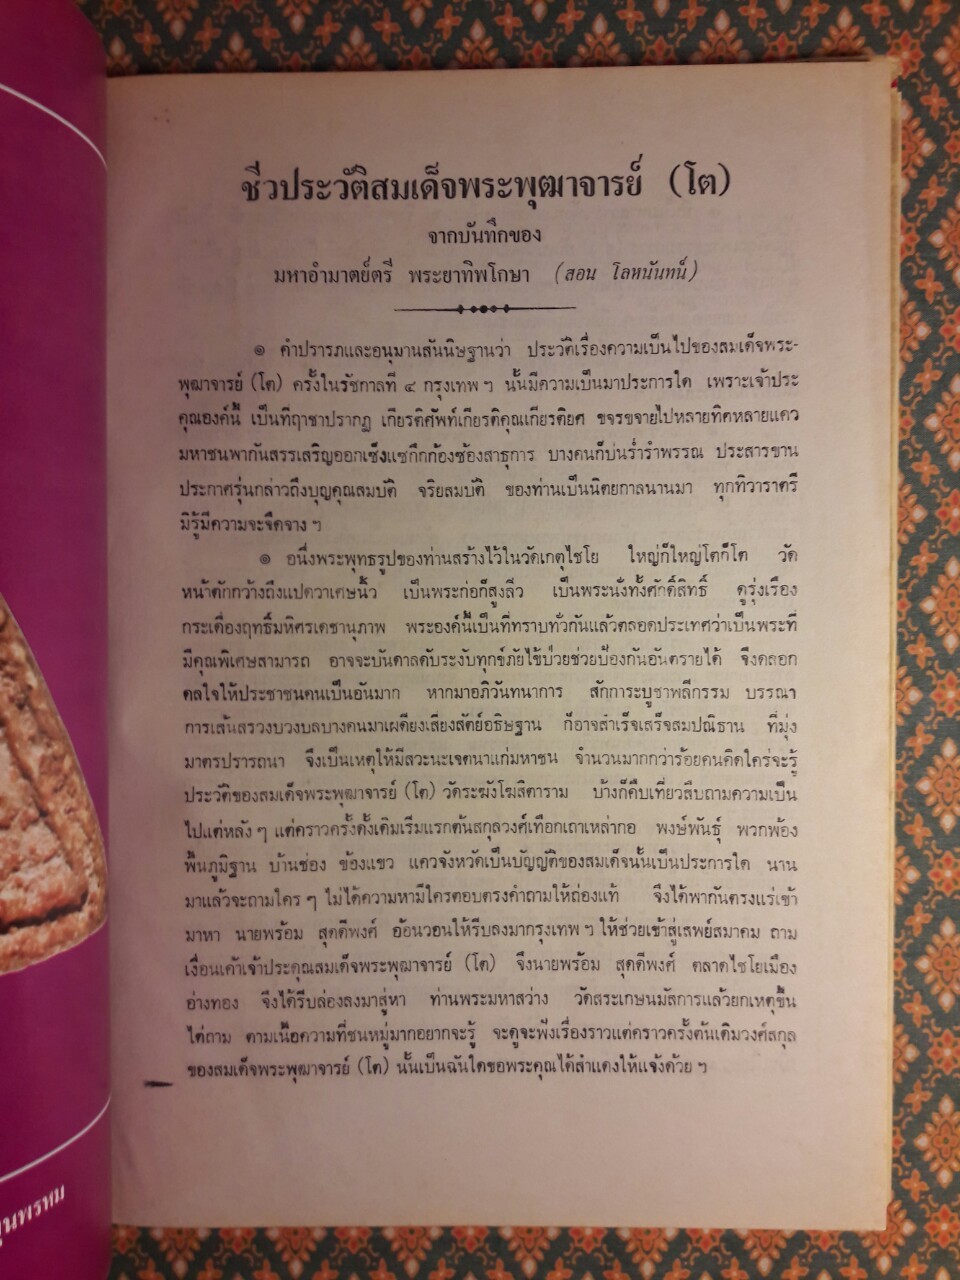 ชีวประวัติสมเด็จพระพุฒาจารย์ (โต)
จากบันทึกของ
มหาอำมาตย์ตรี พระยาทิพโกษา (สอน โลหนันทน์)
๏ คำปรารภและอนุมานสันนิษฐานว่า ประวัติเรื่องความเป็นไปของสมเด็จพระ-
พุฒาจารย์ (โต) ครั้งในรัชกาลที่ ๔ กรุงเทพ ฯ นั้นมีความเป็นมาประการใด เพราะเจ้าประ
คุณองค์นี้ เป็นที่ฤาชาปรากฏ เกียรติศัพท์เกียรติคุณเกียรติยศ ขจรขจายไปหลายทิศหลายแคว
มหาชนพากันสรรเสริญออกเซ็งแซ่กึกก้องซ้องสาธุการ บางคนก็บ่นร่ำรำพรรณ ประสารขาน
ประกาศรุ่นกล่าวถึงบุญคุณสมบัติ จริยสมบัติ ของท่านเป็นนิตยกาลนานมา ทุกทิวาราตรี
มิรู้มีความจะจืดจาง ฯ
๏ อนึ่งพระพุทธรูปของท่านสร้างไว้ในวัดเกตุไชโย ใหญ่ก็ใหญ่โตก็โต วัด
หน้าตักกว้างถึงแปดวาเศษนิ้ว เป็นพระก่อก็สูงลิ่ว เป็นพระนั่งทั้งศักดิ์สิทธิ์ ดูรุ่งเรือง
กระเดื่องฤทธิ์มหิศรเดชานุภาพ พระองค์นี้เป็นที่ทราบทั่วกันแล้วตลอดประเทศว่าเป็นพระที่
มีคุณพิเศษสามารถ อาจจะบันดาลดับระงับทุกข์ภัยไข้ป่วยช่วยป้องกันอันตรายได้ จึงดลอก
ดลใจให้ประชาชนคนเป็นอันมาก หากมาอภิวันทนาการ สักการะบูชาพลีกรรม บรรณา
การเส้นสรวงบวงบลบางคนมาเผดียงเสี่ยงสัตย์อธิษฐาน ก็อาจสำเร็จเสร็จสมปณิธาน ที่มุ่ง
มาตรปรารถนา จึงเป็นเหตุให้มีสวะนะเจตนาแก่มหาชน จำนวนมากกว่าร้อยคนคิดใคร่จะรู้
ประวัติของสมเด็จพระพุฒาจารย์ (โต) วัดระฆังโฆสิตาราม บ้างก็คืบเที่ยวสืบถามความเป็น
ไปแต่หลัง ๆ แต่คราวครั้งดั้งเดิมเริ่มแรกต้นสกุลวงศ์เทือกเถาเหล่ากอ พงษ์พันธุ์ พวกพ้อง
พื้นภูมิฐาน บ้านช่อง ข้องแขว แควจังหวัดเป็นบัญญัติของสมเด็จนั้นเป็นประการใด นาน
มาแล้วจะถามใคร ๆ ไม่ได้ความหามีใครตอบตรงคำถามให้ถ่องแท้ จึงได้พากันตรงแร่เข้า
มาหา นายพร้อม สุดดีพงศ์ อ้อนวอนให้รีบลงมากรุงเทพ ฯ ให้ช่วยเข้าสู่เสพย์สมาคม ถาม
เงื่อนเค้าเจ้าประคุณสมเด็จพระพุฒาจารย์ (โต) จึงนายพร้อม สุดดีพงศ์ ตลาดไชโยเมือง
อ่างทอง จึงได้รีบล่องลงมาสู่หา ท่านพระมหาสว่าง วัดสระเกษนมัสการแล้วยกเหตุขึ้น
ไต่ถาม ตามเนื้อความที่ชนหมู่มากอยากจะรู้ จะดูจะฟังเรื่องราวแต่คราวครั้งต้นเดิมวงศ์สกุล
ของสมเด็จพระพุฒาจารย์ (โต) นั้นเป็นฉันใดขอพระคุณได้สำแดงให้แจ้งด้วย ฯ
ขุนพรหม